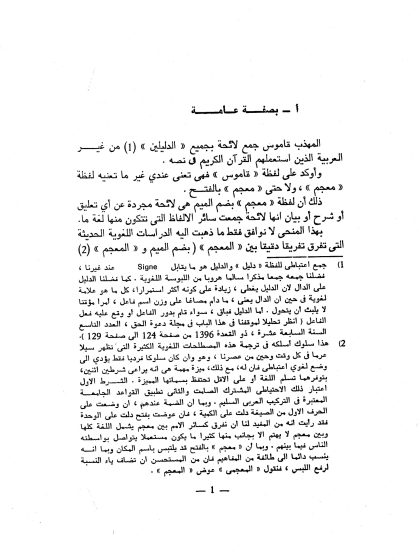 أ ــ بصفة عامة
المهذب قاموس جمع لائحة بجميع « الدليلين » (1) من غير
العربية الذين استعملهم القرآن الكريم في نصه .
وأوكد على لفظة « قاموس » فهى تعنى عندي غير ما تعنيه لفظة
« معجم » ، ولا حتى « معجم » بالفتح .
ذلك أن لفظة « معجم » بضم الميم هى لائحة مجردة عن أي تعليق
أو شرح أو بيان انها لائحة جمعت سائر الالفاظ التى تتكون منها لغة ما.
وبهذا المنحى لا نوافق فقط ما ذهبت اليه الدراسات اللغوية الحديثة
التى تفرق تفريقا دقيقا بين «المعجم» ( بضم الميم و « المعجم » (2)
1) جمع اعتباطى للفظة « دليل » والدليل هو ما يقابل Signe عند غيرنا ،
فضلنا جمعه جمعا مذكرا سالما هروبا من اللبوسة اللغوية . كما فضلنا الدليل
على الدال لان الدليل يغطى ، زيادة على كونه أكثر استمرارا، كل ما هو علامة
لغوية في حين ان الدال يعنى ، ما دام مصاغا على وزن اسم فاعل ، امرا مؤقتا
لا يلبث أن يتحول . اما الدليل فباق ، سواء قام بدور الفاعل أو وقع عليه فعل
الفاعل ( أنظر تحليلا لموقفنا في هذا الباب في مجلة دعوة الحق ، العدد التاسع
السنة السابعة عشرة ، ذو القعدة 1396 من صفحة 124 الى صفحة 129 ).
2) هذا سلوك أسلكه في ترجمة هذه المصطلحات اللغوية الكثيرة التى تظهر سيلا
عرما في كل وقت وحين من عصرنا ، وهو وان كان سلوكا فرديا فقط يؤدي الى
وضع لغوي اعتباطى فان له، مع ذلك، ميزة مهمة هى انه يراعى شرطين اثنين،
بتوفرهما تسلم اللغة أو على الاقل تحتفظ بسماتها المميزة . الشرط الاول
اعتبار ذلك الاحتياطى المشترك الصامت والثانى تطبيق القواعد الجامعة
المعتبرة في التركيب العربى السليم . وبما ان الضمة عندهم ، ان وضعت على
الحرف الاول من الصيغة دلت على الكمية ، فان عوضت بفتح دلت على الوحدة
فقد رأيت انه من المفيد لنا ان نفرق كسائر الامم بين معجم يشمل اللغة كلها
وبين معجم لا يهتم الا بجانب منها كثيرا ما يكون مستعملا يتواصل بواسطته
الناس فيما بينهم . وبما ان « معجم » بالفتح قد يلتبس باسم المكان وبما انه
ينسب دائما الى طائفة من المفاهيم فان من المستحسن ان تضاف ياء النسبة
لرفع اللبس ، فنقول « المعجمى » عوض « المعجم » .
— 1 —